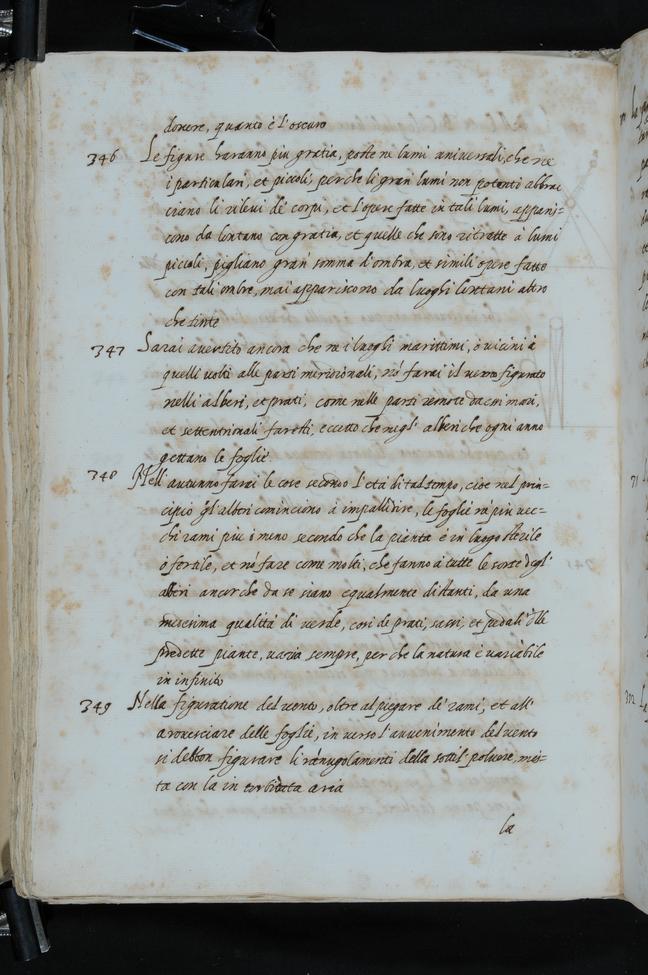 dovere, quanto è l'oscuro
346 Le figure haranno piu gratia, poste ne lumi universali, che ne
i particulari, et piccoli, perche li gran lumi non potenti abbrac
ciano li rilievi de' corpi, et l'opere fatte in tali lumi, appari=
cono da lontano con gratia, et quelle che sono ritratte à lumi
piccoli, pigliano gran somma d'ombra, et simili opere fatte
con tali ombre, mai appariscono da luoghi lontani altro
che tinte
347 Sarai avertito ancora che ne i luoghi marittimi, ò vicini à
quelli volti alle parti meridionali, nō farai il verno figurato
nelli alberi, et prati, come nelle parti remote da essi mari,
et settentrionali faresti, eccetto che negl' alberi che ogni anno
gettano le foglie.
348 Nell' autunno farai le cose secondo l'età di tal tempo, cioè nel prin=
cipio gl' alberi cominciono à impallidire, le foglie nè piu vec=
chi rami piu ò meno secondo che la pianta è in luogo sterile
ò fertile, et nō fare come molti, che fanno à tutte le sorte degl'
alberi ancor che da se siano equalmente distanti, da una
medesima qualità di verde, cosi de prati, sassi, et pedali dlle
predette piante, varia sempre, per che la natura è variabile
in infinito
349 Nella figuratione del vento, oltre al piegare de' rami, et all'
arovesciare delle foglie, in verso l'avvenimento del vento
si debbon figurare li ranugolamenti della sottil polvere mis=
ta con la in torbidata aria
la